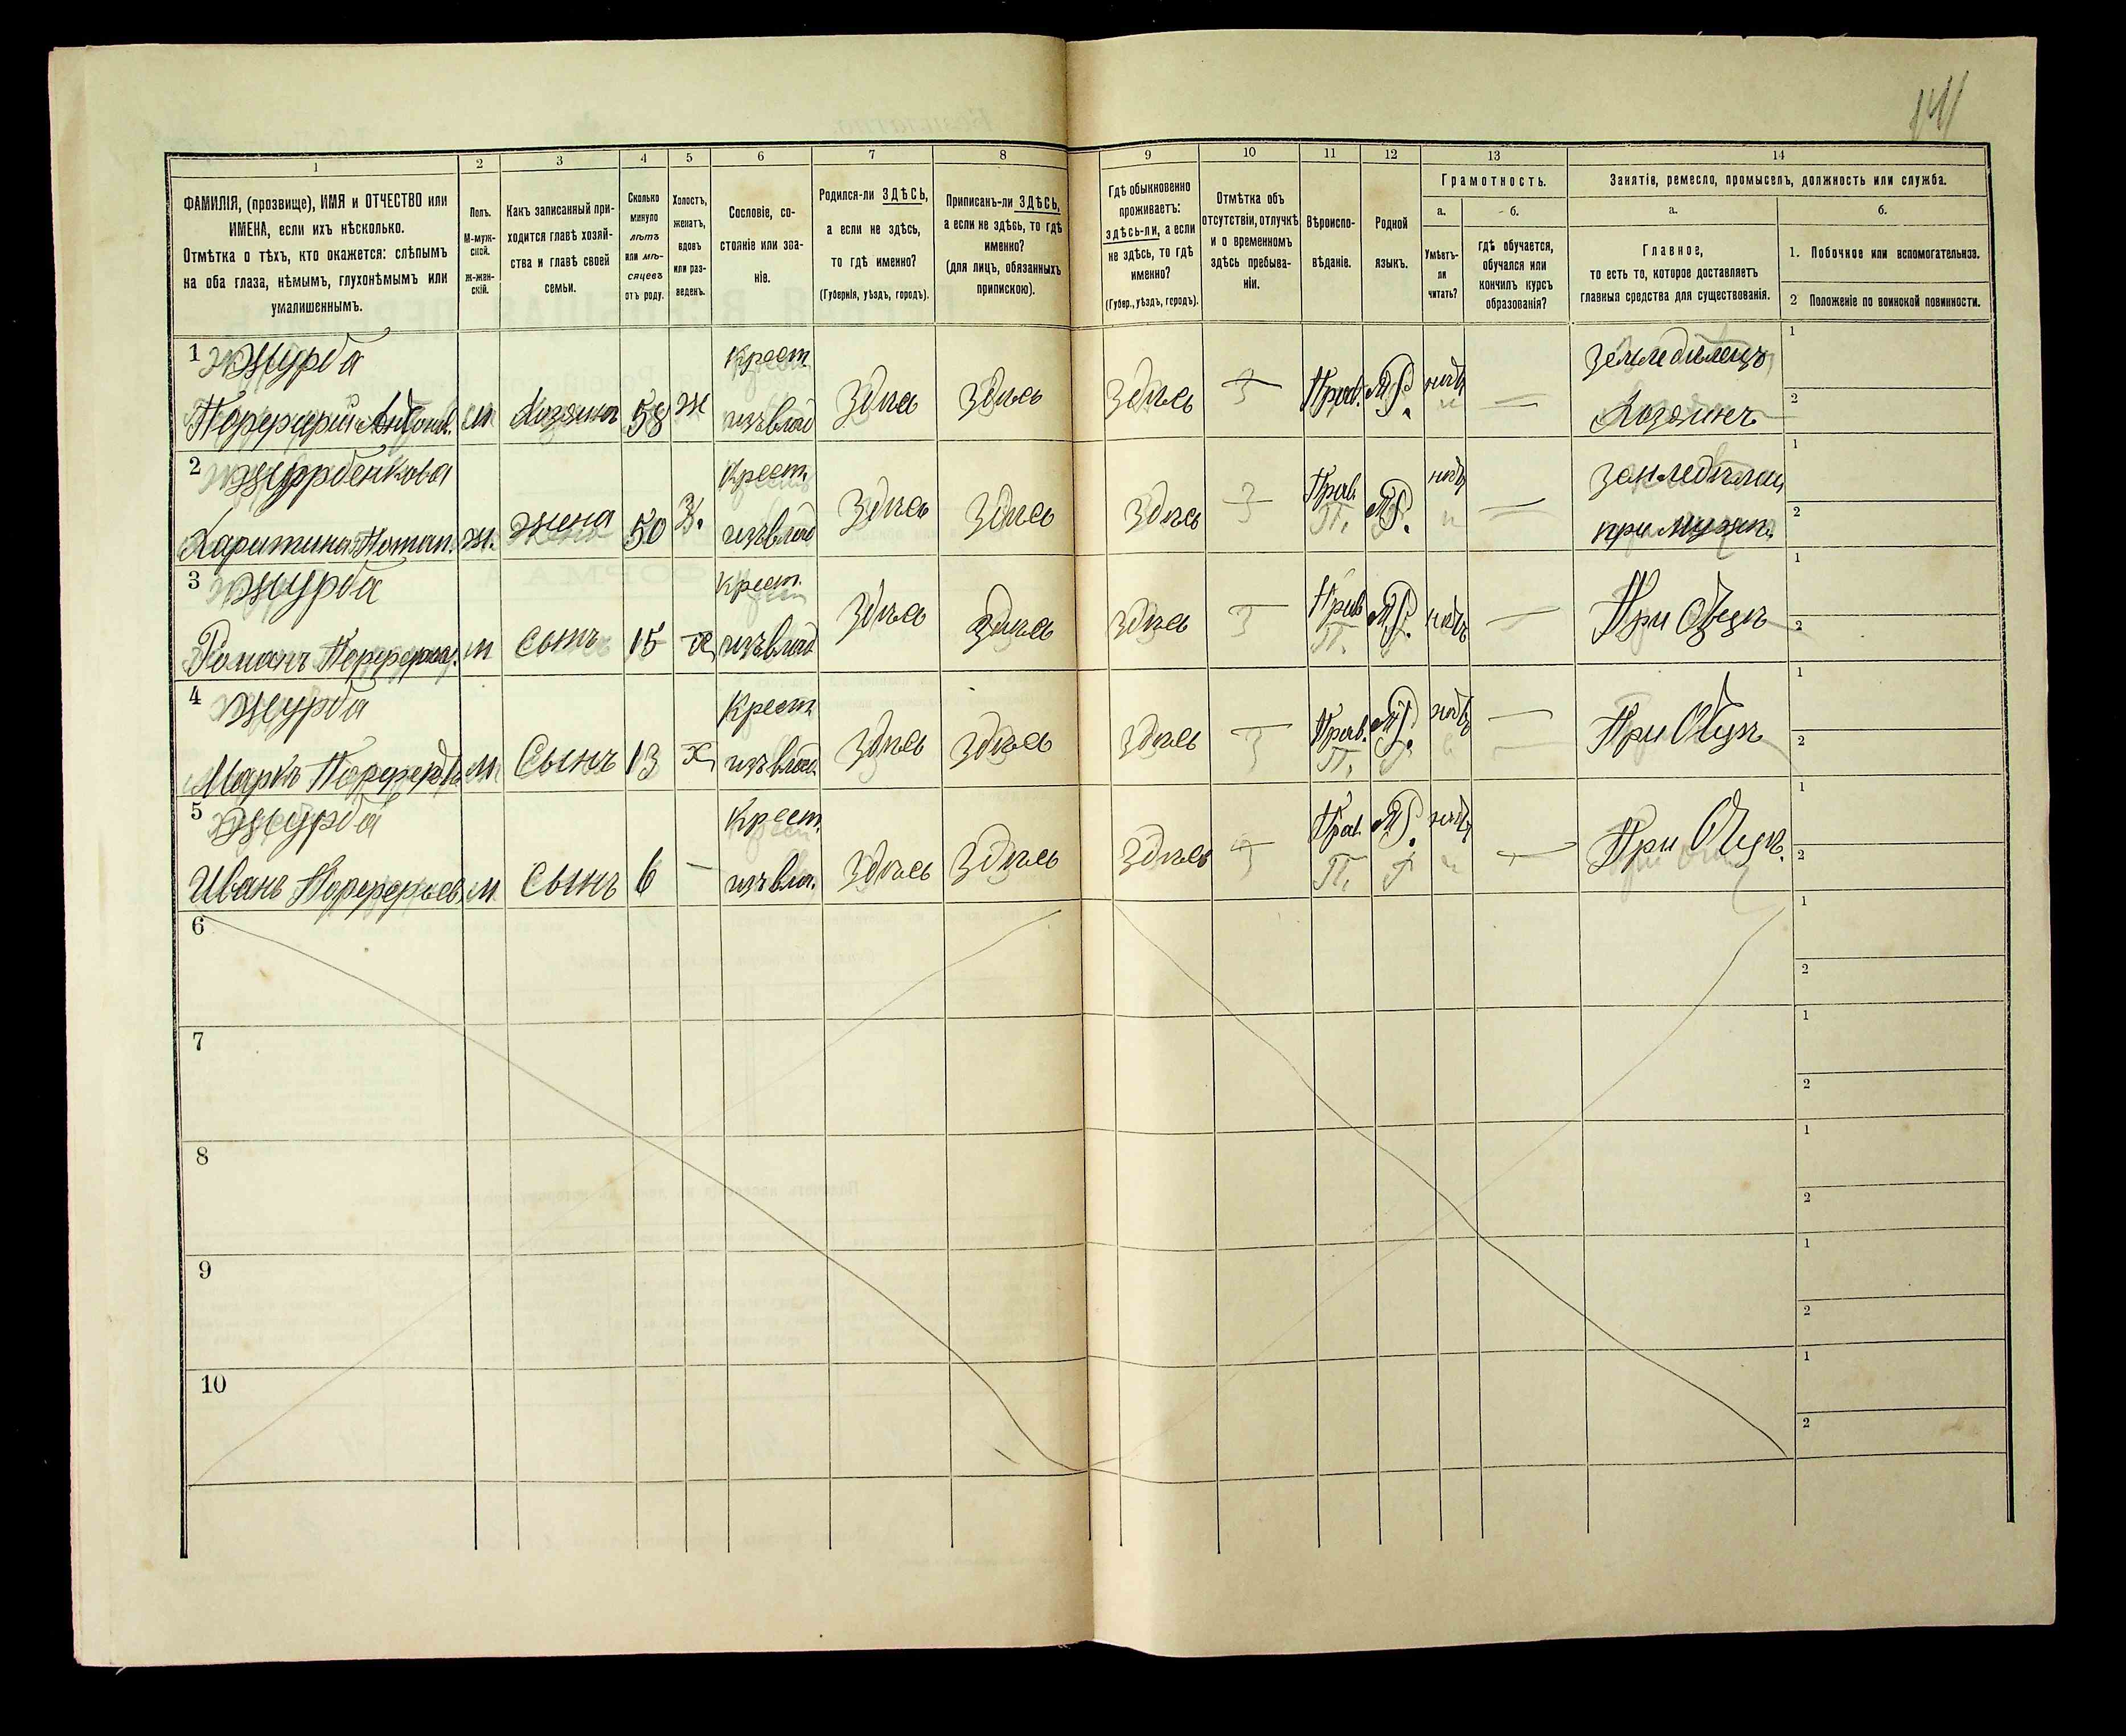 141
1
2
3
4
5
6
7
8
9
10
11
12
13
14
ФАМИЛІЯ, (прозвище), ИМЯ и ОТЧЕСТВО или
ИМЕНА, если ихъ нѣсколько.
Отмѣтка о тѣхъ, кто окажется: слѣпымъ
на оба глаза, нѣмымъ, глухонѣмымъ или
умалишеннымъ.
Полъ.
М-муж-
ской.
Ж-жен-
скій.
Какъ записанный при-
ходится главѣ хозяй-
ства и главѣ своей
семьи.
Сколько
минуло
лѣтъ
или мѣ-
сяцевъ
отъ роду.
Холостъ,
женатъ,
вдовъ
или раз-
веденъ.
Сословіе, со-
стояніе или зва-
ніе.
Родился-ли ЗДѢСЬ,
а если не здѣсь,
то гдѣ именно?
(Губернія, уѣздъ, городъ).
Приписанъ-ли ЗДѢСЬ,
а если не здѣсь, то гдѣ
именно?
(для лицъ, обязанныхъ
припискою).
Гдѣ обыкновенно
проживаетъ:
здѣсь-ли, а если
не здѣсь, то гдѣ
именно?
(Губер., уѣздъ, городъ).
Отмѣтка объ
отсутствіи, отлучкѣ
и о временномъ
здѣсь пребыва-
ніи.
Вѣроиспо-
вѣданіе.
Родной
языкъ.
Грамотность.
а.
Умѣетъ-
ли
читать?
б.
гдѣ обучается,
обучался или
кончилъ курсъ
образованія?
Занятія, ремесло, промыселъ, должность или служба.
а.
Главное,
то есть то, которое доставляетъ
главныя средства для существованія.
б.
1. Побочное или вспомогательное.
2 Положеніе по воинской повинности.
1 Журба Крест. Земледѣлецъ 1
Порфирій Антонов. м Хозяинъ 58 ж изъ влад Здѣсь Здѣсь Здѣсь — Прав. М.Р. нѣтъ — Хозяинъ 2
2 Журбенкова Крест. Земледѣлец 1
Харитина Потап. ж. жена 50 З. изъ влад Здѣсь Здѣсь Здѣсь — Прав. М.Р. нѣтъ — при мужѣ 2
3 Журба Крест. 1
Романъ Порфирьев. м сынъ 15 х изъ влад Здѣсь Здѣсь Здѣсь — Прав М.Р. нѣтъ — При Отцѣ 2
4 Журба Крест 1
Маркъ Порфирьев м Сынъ 13 х изъ влад. Здѣсь Здѣсь Здѣсь — Прав. М.Р. нѣтъ — При Отцѣ 2
5 Журба Крест. 1
Иванъ Порфирьев. м. сынъ 6 — изъ вла. Здѣсь Здѣсь Здѣсь — Прав. М.Р. нѣтъ — При Отцѣ. 2
6 1
2
7 1
2
8 1
2
9 1
2
10 1
2